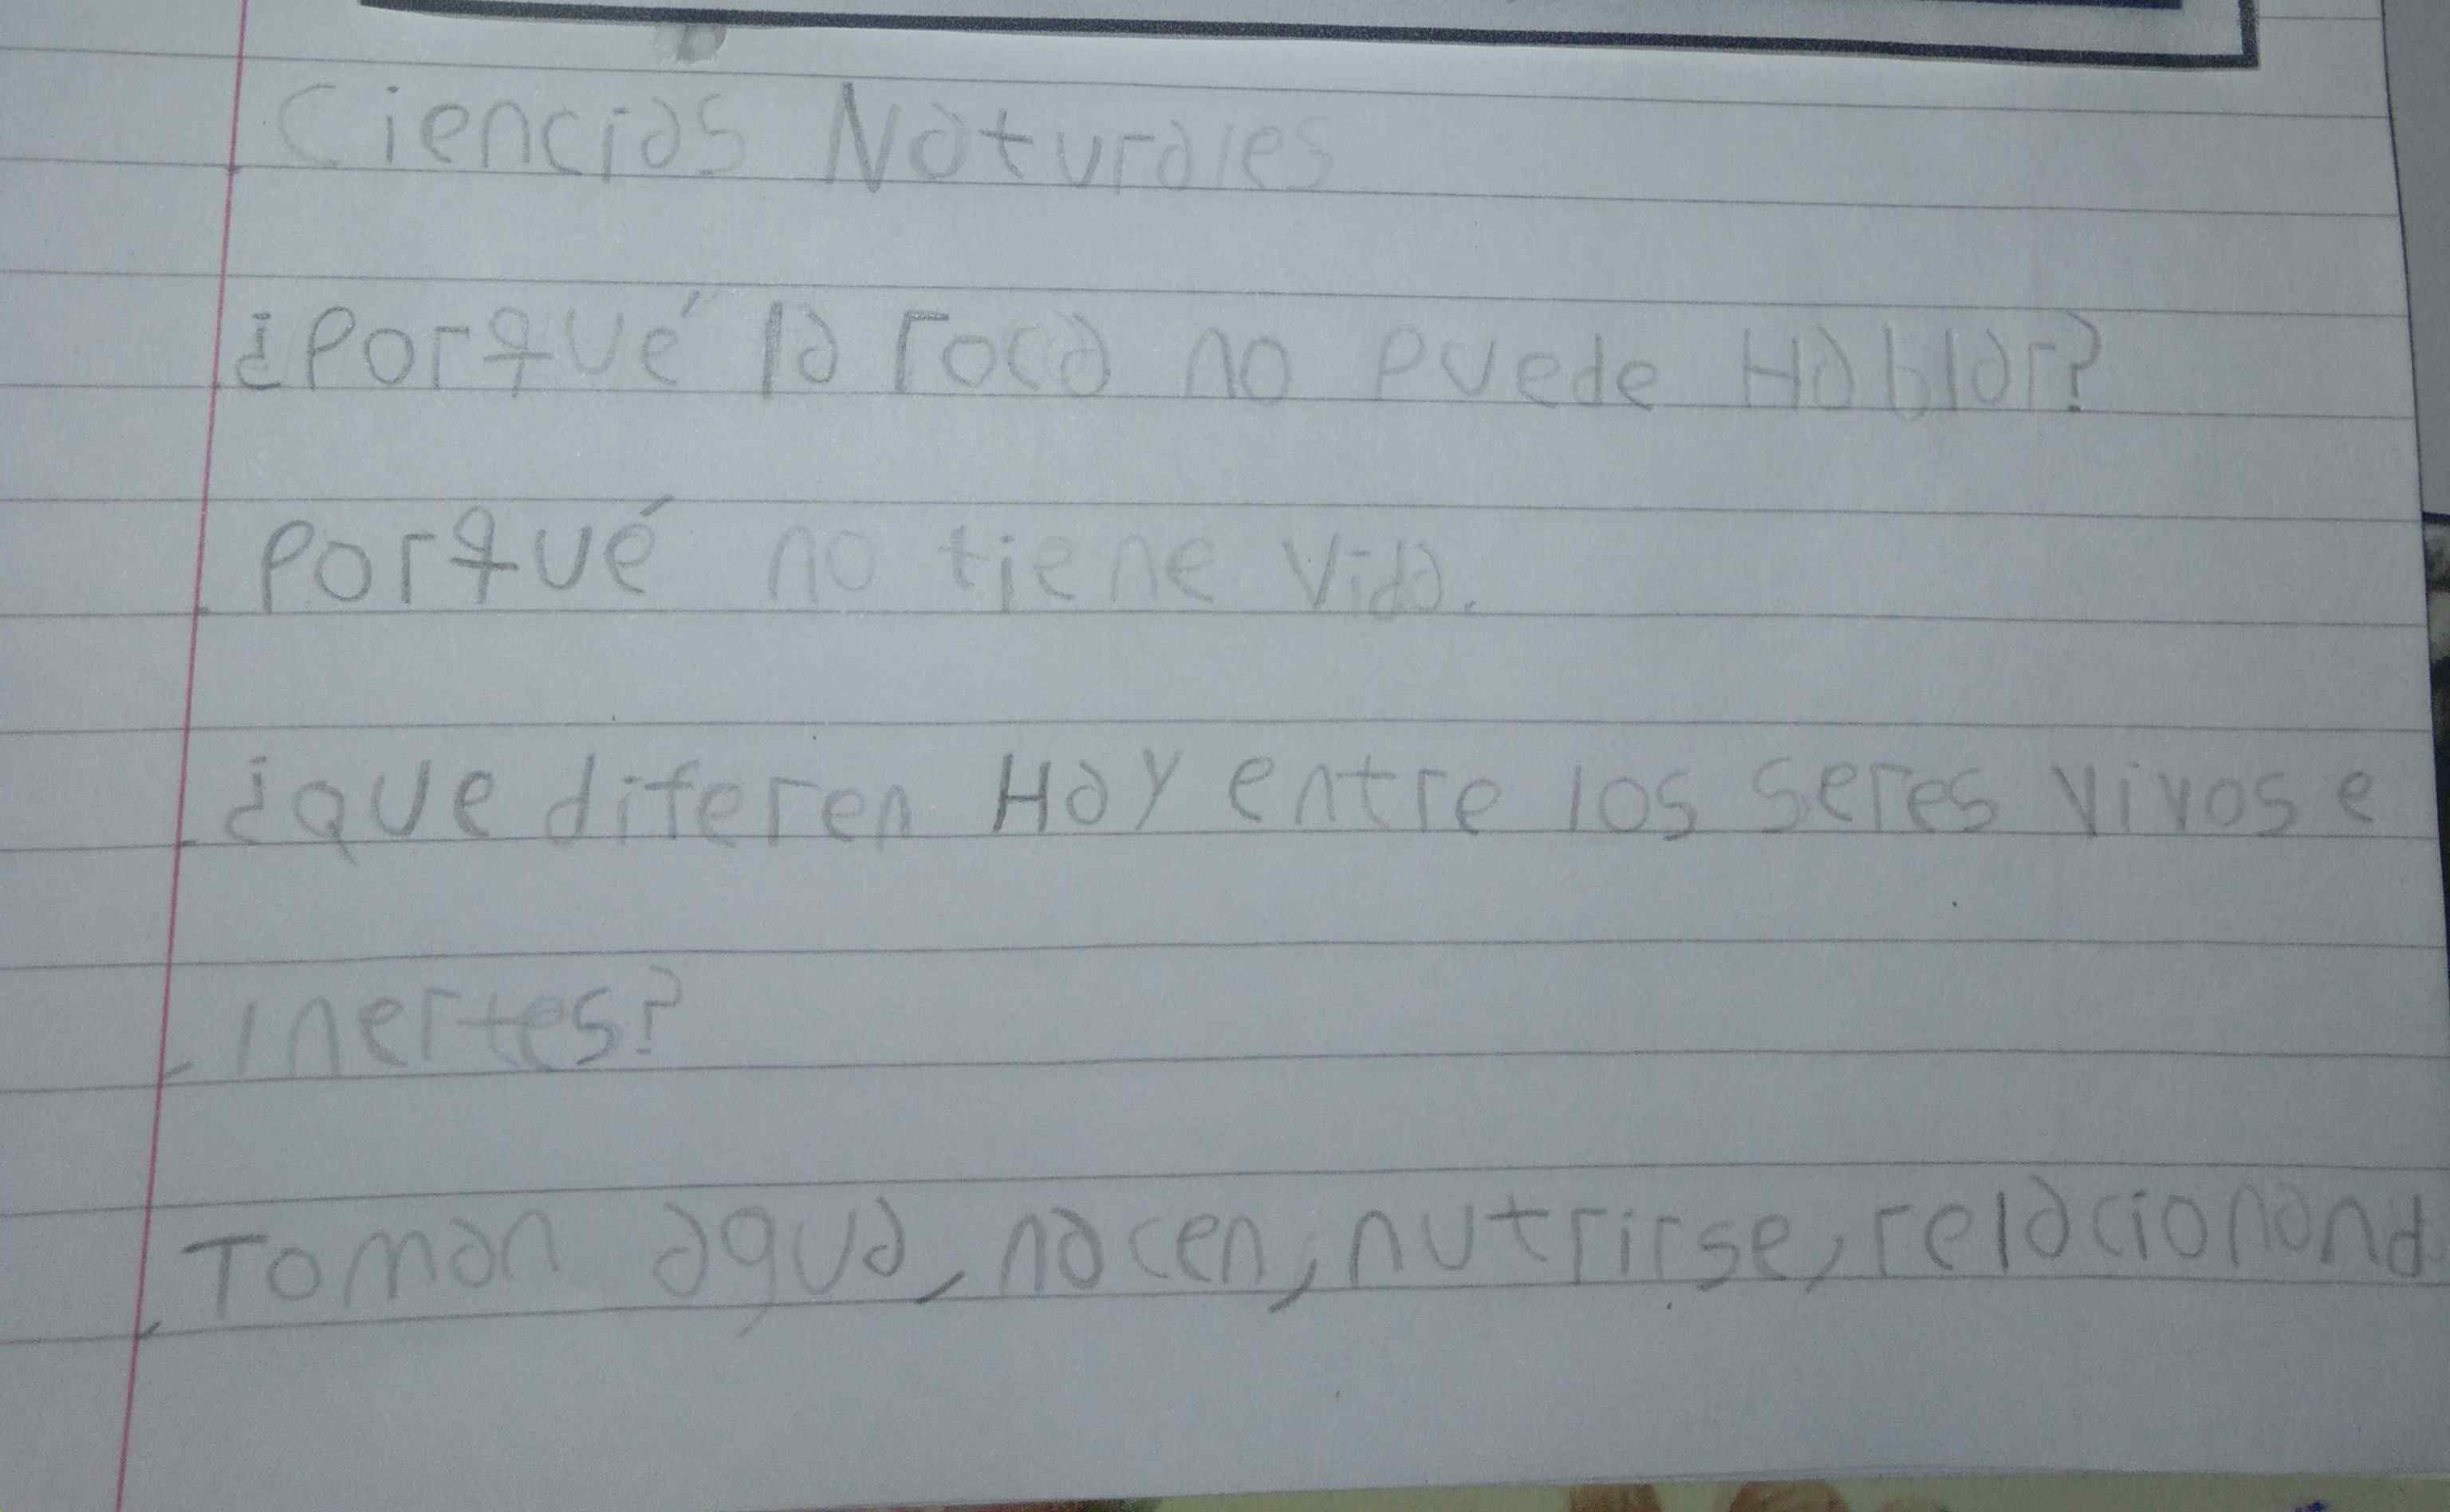 Ciencias Naturales
¿Porqué la roca no puede Hablar?
Porqué no tiene vida.
¿que diferen Hay entre los seres vivos e
inertes?
Toman agua, nacen, nutrirse, relacionand